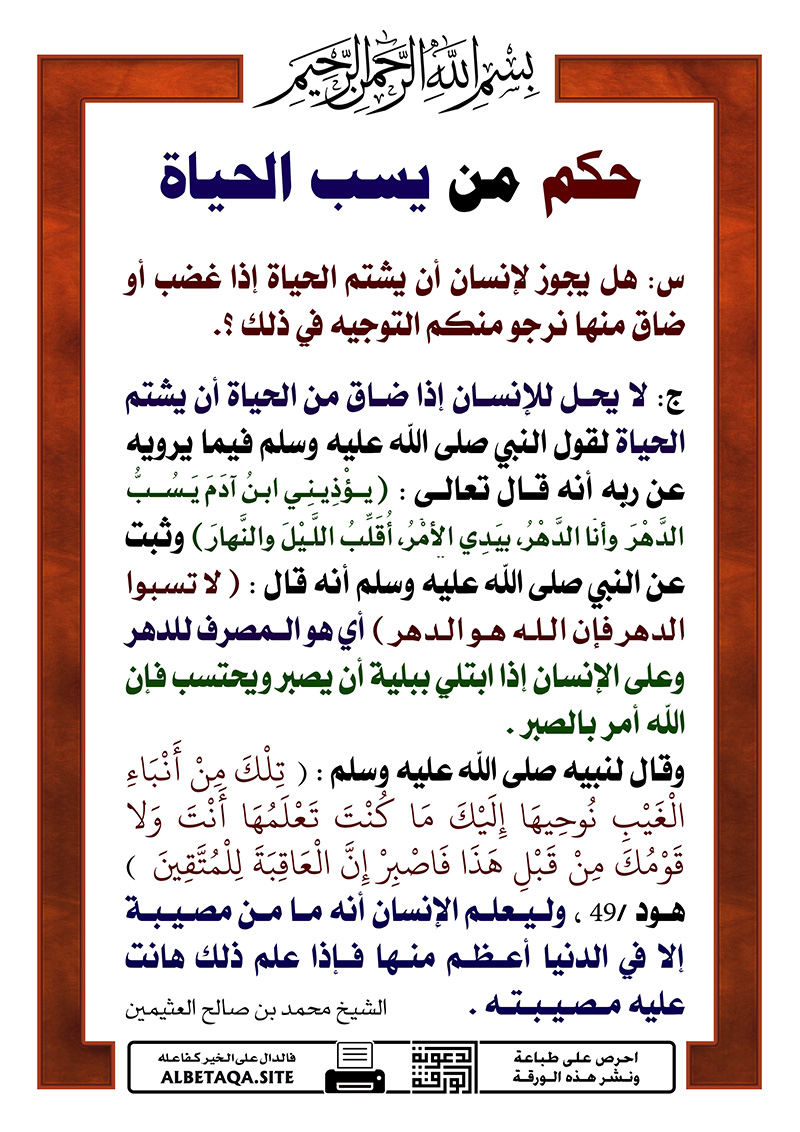 بِسْمِ اللَّهِ الرَّحْمَنِ الرَّحِيمِ
حكم من يسب الحياة
س: هل يجوز لإنسان أن يشتم الحياة إذا غضب أو
ضاق منها نرجو منكم التوجيه في ذلك ؟.
ج: لا يحل للإنسان إذا ضاق من الحياة أن يشتم
الحياة لقول النبي صلى الله عليه وسلم فيما يرويه
عن ربه أنه قال تعالى : ( يؤْذِينِي ابنُ آدَمَ يَسُبُّ
الدَّهْرَ وأنا الدَّهْرُ، بيَدِي الأمْرُ، أُقَلِّبُ اللَّيْلَ والنَّهارَ) وثبت
عن النبي صلى الله عليه وسلم أنه قال : ( لا تسبوا
الدهر فإن الله هو الدهر ) أي هو المصرف للدهر
وعلى الإنسان إذا ابتلي ببلية أن يصبر ويحتسب فإن
الله أمر بالصبر .
وقال لنبيه صلى الله عليه وسلم : ( تِلْكَ مِنْ أَنْبَاءِ
الْغَيْبِ نُوحِيهَا إِلَيْكَ مَا كُنْتَ تَعْلَمُهَا أَنْتَ وَلا
قَوْمُكَ مِنْ قَبْلِ هَذَا فَاصْبِرْ إِنَّ الْعَاقِبَةَ لِلْمُتَّقِينَ )
هود /49 ، وليعلم الإنسان أنه ما من مصيبة
إلا في الدنيا أعظم منها فإذا علم ذلك هانت
عليه مصيبته . الشيخ محمد بن صالح العثيمين
احرص على طباعة
ونشر هذه الورقة
الورقة الدعوية
فالدال على الخير كفاعله
ALBETAQA.SITE